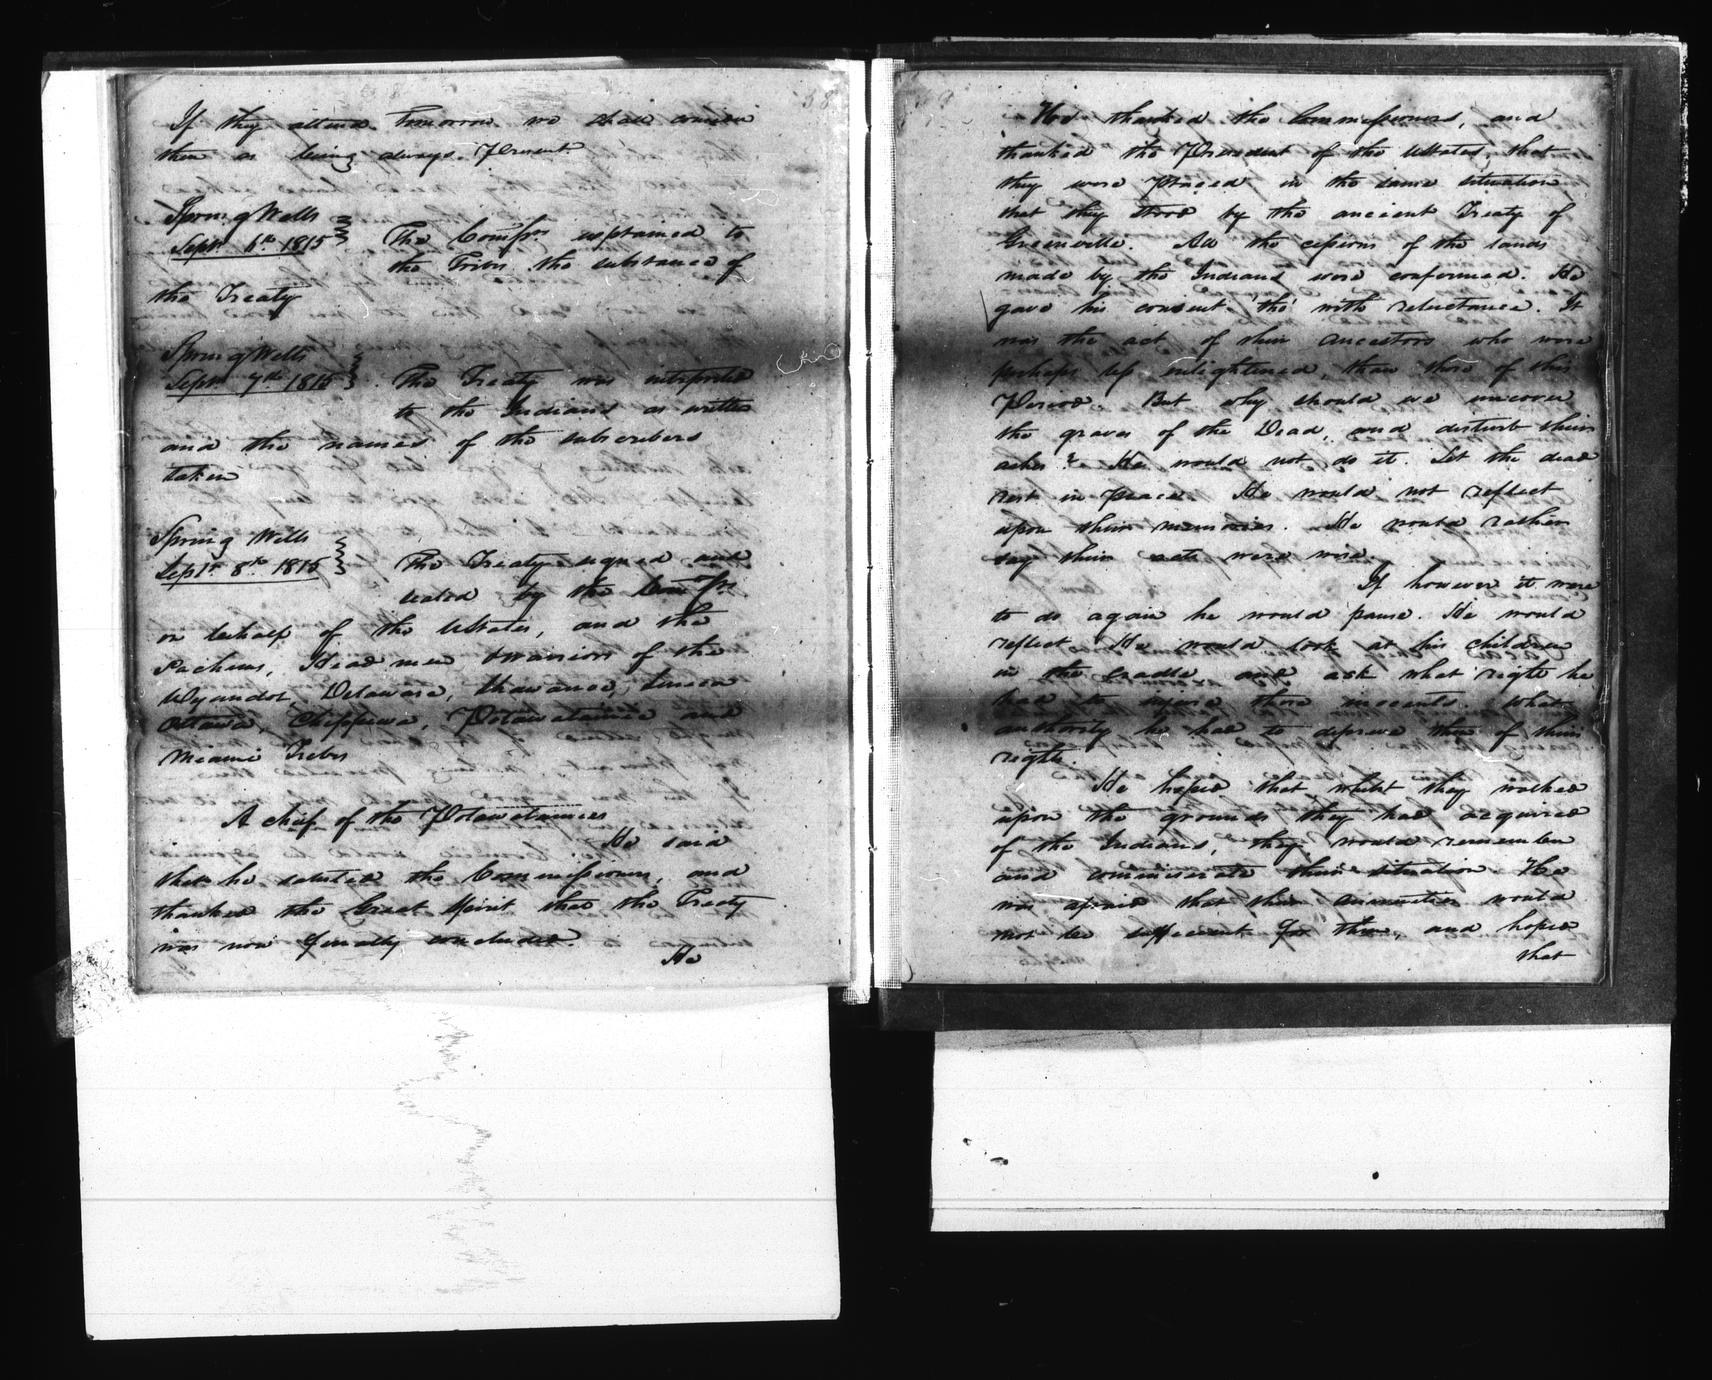 58
If they attend tomorrow we shall consider
them as being always Present.
Spring Wells
Sept. 6th 1815 The Comssrs explained to
the Tribes the substance of
the Treaty
Spring Wells
Septr 7th 1815 The Treaty was interpreted
to the Indians as written
and the names of the subscribers
taken
Spring Wells
Septr 8th 1815 The Treaty signed and
sealed by the Comssrs
on behalf of the UStates, and the
Sachems, Head men & warriors of the
Wyandot, Delaware, Shawanee, Seneca
Ottawa, Chippewa, Potawatamie and
Miami Tribes
A chief of the Potawatamies
He said
that he saluted the Commissioners, and
thanked the Great Spirit that the Treaty
was now finally concluded.
He
59
He thanked the Commissioners, and
thanked the President of the UStates, that
they were placed in the same situation
that they stood by the ancient Treaty of
Greenville. All the cessions of the lands
made by the Indians were confirmed. He
gave his consent tho' with reluctance. It
was the act of their ancestors who were
perhaps less enlightened, than those of this
Period. But why should we uncover
the graves of the Dead, and disturb their
ashes? He would not do it. Let the dead
rest in peace. He would not reflect
upon their memories. He would rather
say their acts were wise.
If however it were
to do again he would pause. He would
reflect. He would look at his children
in the cradle and ask what right he
had to injure those innocents. What
authority he had to deprive them of their
rights.
He hoped that whilst they walked
upon the grounds they had acquired
of the Indians, they would remember
and commiserate their situation. He
was afraid that their annuities would
not be sufficient for them, and hoped
that